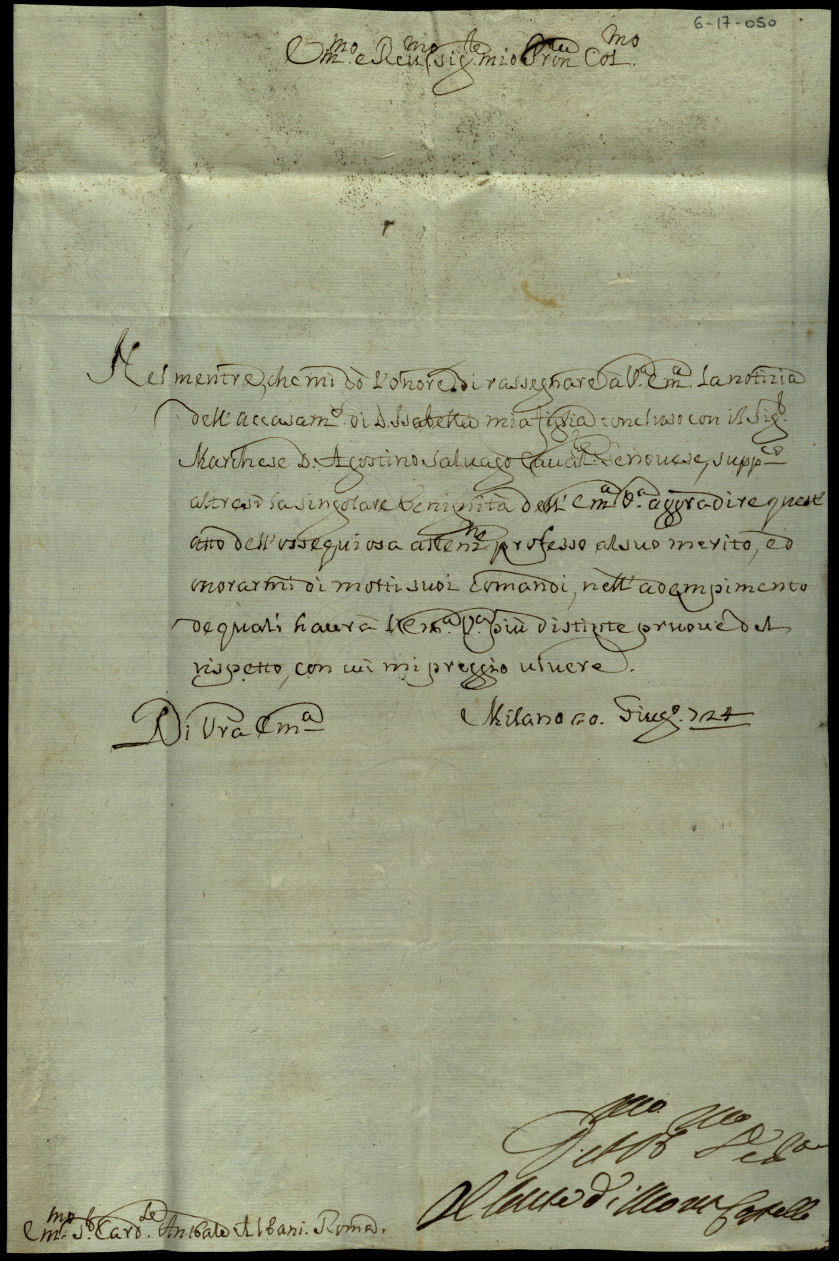 6-17-050
Em.mo e Reu.mo Sig.re mio Pron Col.mo
Nel mentre, che mi dò l'onore di rassegnare à V.a Em.a la notizia
dell'accasam.o di D. Isabella mia figlia concluso con il Sig.r
Marchese D. Agostino Salvago Caual.re Genouese, supp.co
altresì la singolare benignità dell'Em.a V.a aggradire quest
atto dell'ossequiosa atten.ne professo al suo merito, ed
onorarmi di molti suoi Comandi, nell'adempimento
de quali haurà l'Em.a V.a più distinte pruoue del
rispetto, con cui mi preggio uiuere.
Di Vra Em.a Milano 20. Giug.o 724
Em.mo S.r Card.le Anibale Albani. Roma.
Il Conte di